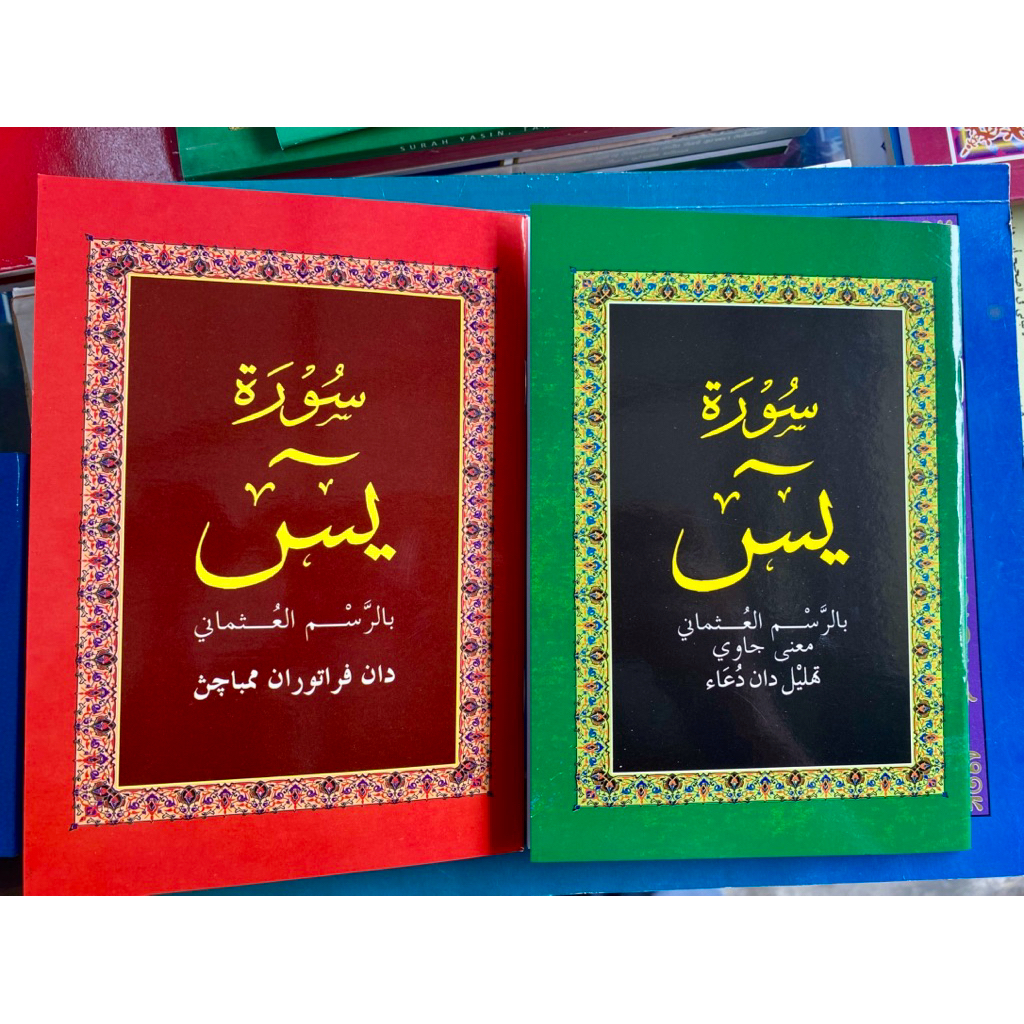 SURAH YASIN, TA
سُوْرَة
يٓسٓ
بالرَّسْمِ العُثماني
دان فراتوران ممباچڽ
سُوْرَة
يٓسٓ
بالرَّسْمِ العُثماني
معنى جاوي
تهليْل دان دُعَاء